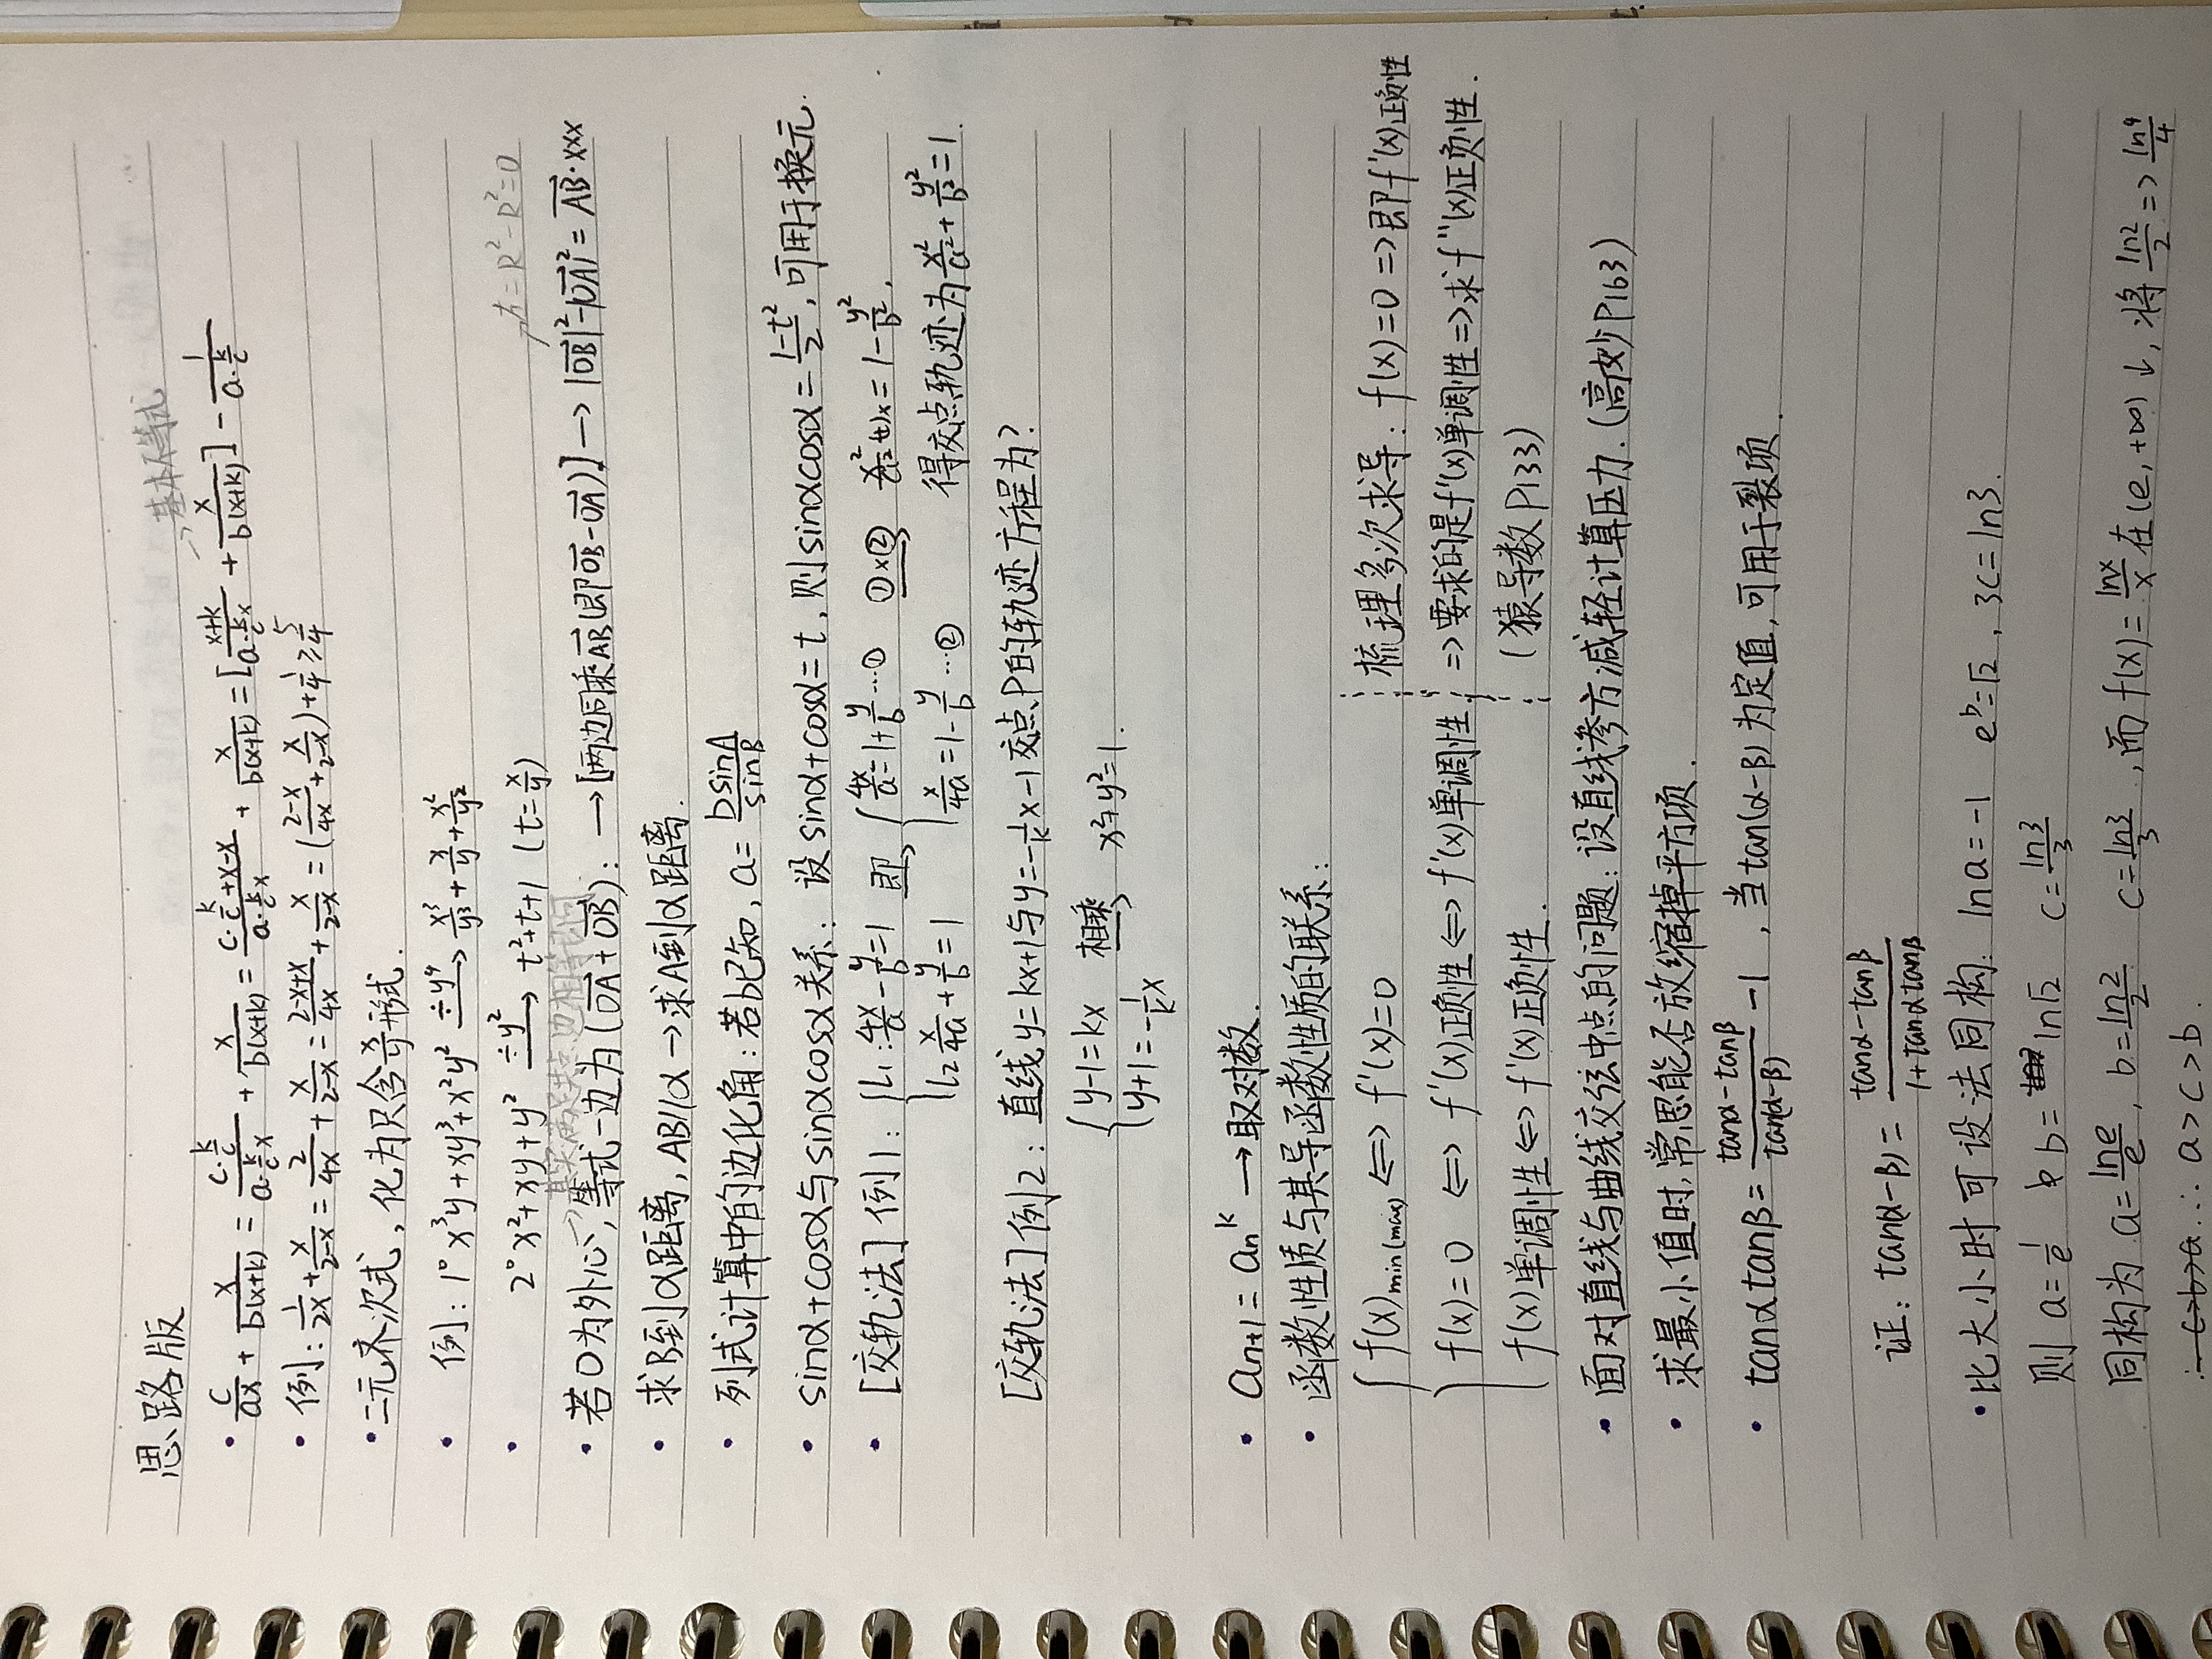 思路版
→基本不等式
• c/(ax) + x/(b(x+k)) = (c·k/c)/(a·k/c x) + x/(b(x+k)) = (c·k/c+x-x)/(a·k/c x) + x/(b(x+k)) = [(x+k)/(a·k/c x) + x/(b(x+k))] - 1/(a·k/c)
• 例: 1/(2x) + x/(2-x) = 2/(4x) + x/(2-x) = (2-x+x)/(4x) + x/(2-x) = ((2-x)/(4x) + x/(2-x)) + 1/4 ≥ 5/4
• 二元齐次式, 化为只含x/y形式.
• 例: 1° x³y+xy³+x²y² ÷y⁴→ x³/y³ + x/y + x²/y²
• 2° x²+xy+y² ÷y²→ t²+t+1 (t=x/y)
右=R²-R²=0
• 若O为外心, 等式一边为(OA+OB): →[两边同乘AB(即OB-OA)]→ |OB|²-|OA|²=AB·xxx
• 求B到α距离, AB∥α→求A到α距离.
• 列式计算中的边化角: 若b已知, a=bsinA/sinB
• sinα+cosα与sinαcosα关系: 设sinα+cosα=t, 则sinαcosα=(1-t²)/2, 可用于换元.
• [交轨法]例1: {L₁: 4x/a - y/b=1 即→ {4x/a=1+y/b…① ①×②→ x²/a²(t)x=1-y²/b²,
L₂ x/4a + y/b=1 x/4a=1-y/b…② 得交点轨迹为x²/a²+y²/b²=1.
[交轨法]例2: 直线y=kx+1与y=-1/k x-1交点P的轨迹方程为?
{y-1=kx 相乘→ x²+y²=1.
y+1=-1/k x
• aₙ₊₁=aₙᵏ →取对数.
• 函数性质与其导函数性质的联系:
{f(x)min(max) ⇔ f'(x)=0 梳理多次求导: f(x)=0 ⇒即f'(x)正负性
f(x)=0 ⇔ f'(x)正负性⇔f'(x)单调性. ⇒要求的是f'(x)单调性⇒求f''(x)正负性.
f(x)单调性⇔f'(x)正负性. (猿导数P133)
• 面对直线与曲线交弦中点的问题: 设直线参方减轻计算压力. (高妙P163)
• 求最小值时, 常思能否放缩掉平方项.
• tanαtanβ=(tanα-tanβ)/tan(α-β) -1, 当tan(α-β)为定值, 可用于裂项.
证: tan(α-β)=(tanα-tanβ)/(1+tanαtanβ)
• 比大小时可设法同构: lna=-1 eᵇ=√2, 3c=ln3.
则a=1/e b=ln√2 c=ln3/3
同构为a=lne/e, b=ln2/2 c=ln3/3, 而f(x)=lnx/x在(e,+∞)↓, 将ln2/2⇒ln4/4
∴a>c>b.